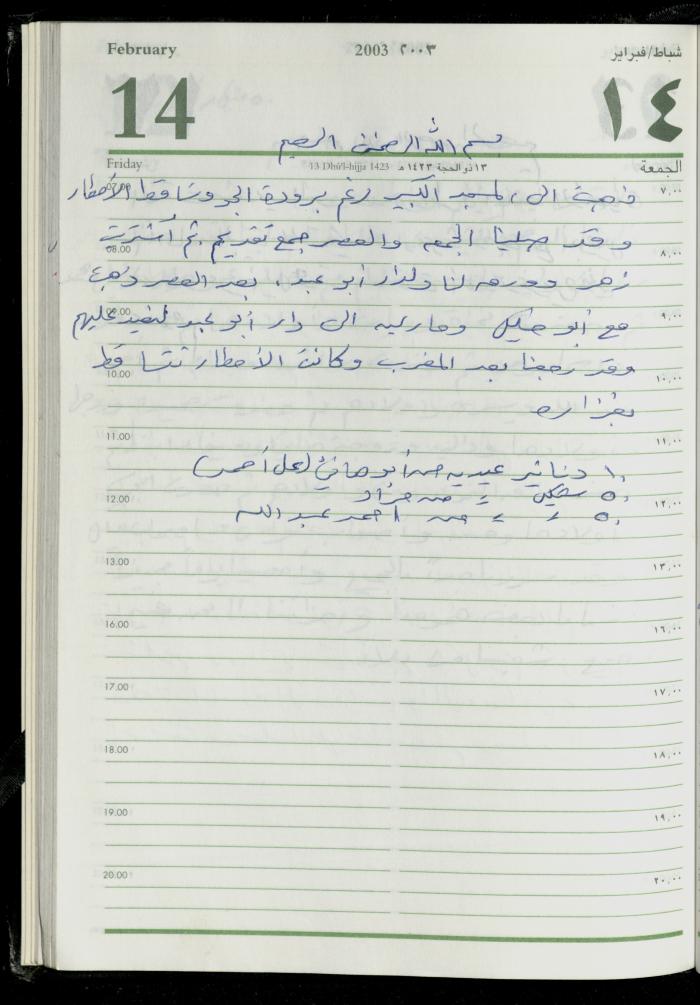 February 2003 ٢٠٠٣ شباط/فبراير
14 ١٤
بسم الله الرحمن الرحيم
Friday 13 Dhu'l-hijja 1423 ١٣ ذو الحجة ١٤٢٣ هـ الجمعة
07.00 ٧,٠٠
الى المسجد الكبير رغم برودة الجو وتساقط الأمطار
08.00 ٨,٠٠
وقد صلينا الجمعه والعصر جمع تقديم ثم أشتريت
لنا ولدار أبو عبد، بعد العصر ذهبت
09.00 ٩,٠٠
مع أبو خليل وماريه الى دار أبو عبد لنعيد عليهم
10.00 ١٠,٠٠
وقد رجعنا بعد المغرب وكانت الأمطار تتساقط
بغزاره
11.00 ١١,٠٠
١٠ دنانير عيديه من أبو هاني (عمل أحمد)
12.00 ١٢,٠٠
٥٠ شيكل = من مراد
٥٠ = = من احمد عبد الله
13.00 ١٣,٠٠
16.00 ١٦,٠٠
17.00 ١٧,٠٠
18.00 ١٨,٠٠
19.00 ١٩,٠٠
20.00 ٢٠,٠٠